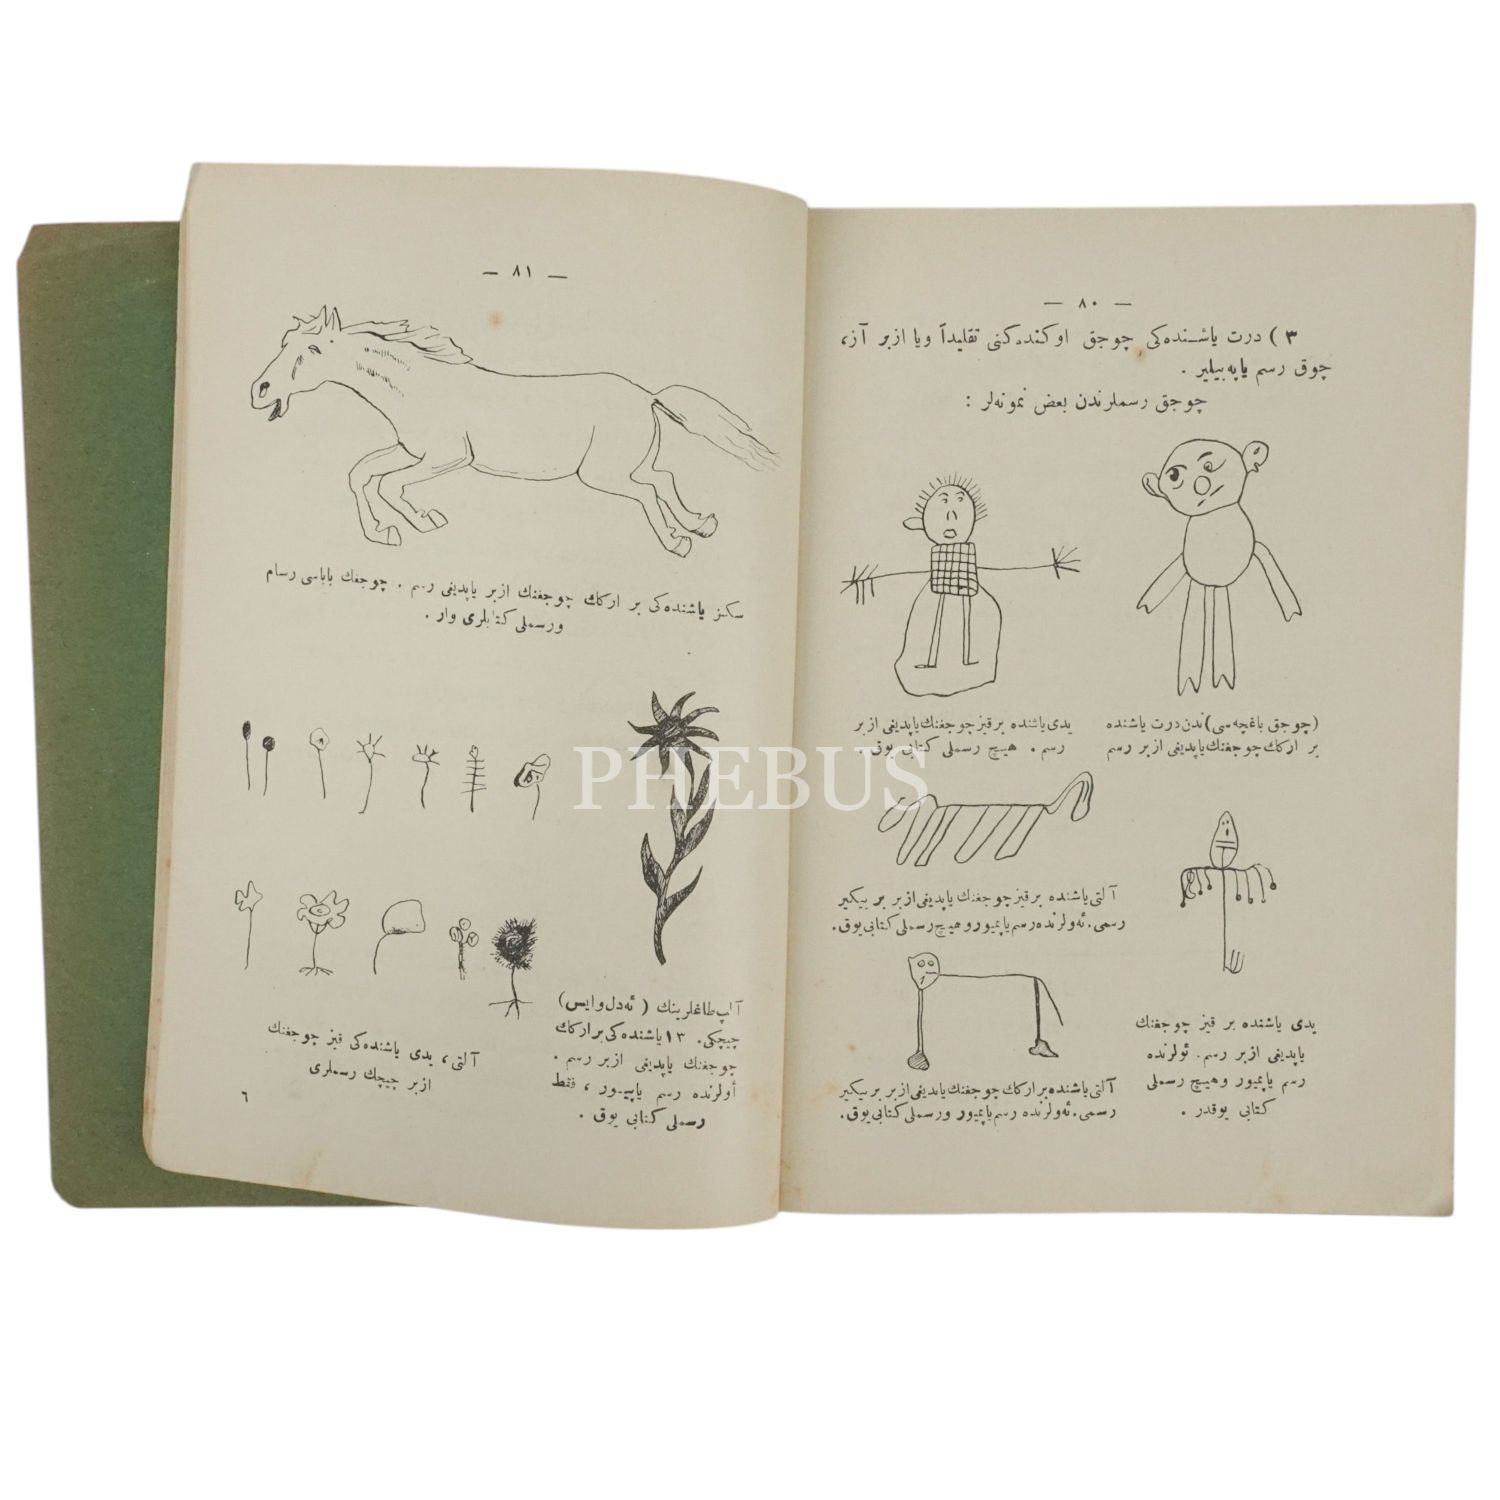 — ٨٠ —
٣) درت یاشنده‌کی چوجق اوکنده‌کنی تقلیداً ویا ازبر آز،
چوق رسم یاپه‌بیلیر .
چوجق رسملرندن بعض نمونه‌لر :
(چوجق باغچه‌سی)ندن درت یاشنده
بر ارکك چوجغنك یاپدیغی ازبر رسم
یدی یاشنده بر قیز چوجغنك یاپدیغی ازبر
رسم . هیچ رسملی کتابی یوق .
آلتی یاشنده بر قیز چوجغنك یاپدیغی ازبر بر بیکیر
رسمی. ئه‌ولرنده رسم یاپمیور و هیچ رسملی کتابی یوق.
یدی یاشنده بر قیز چوجغنك
یاپدیغی ازبر رسم. ئولرنده
رسم یاپمیور وهیچ رسملی
کتابی یوقدر .
آلتی یاشنده بر ارکك چوجغنك یاپدیغی ازبر بر بیکیر
رسمی. ئه‌ولرنده رسم یاپمیور و رسملی کتابی یوق.
— ٨١ —
سکز یاشنده‌کی بر ارکك چوجغنك ازبر یاپدیغی رسم . چوجغك باباسی رسام
ورسملی کتابلری وار .
آلپ طاغلرینك (ئه‌دل‌وایس)
چیچکی. ١٣ یاشنده‌کی بر ارکك
چوجغك یاپدیغی ازبر رسم .
أولرنده رسم یاپییور ، فقط
رسملی کتابی یوق .
آلتی، یدی یاشنده‌کی قیز چوجغنك
ازبر چیچك رسملری
٦
PHEBUS